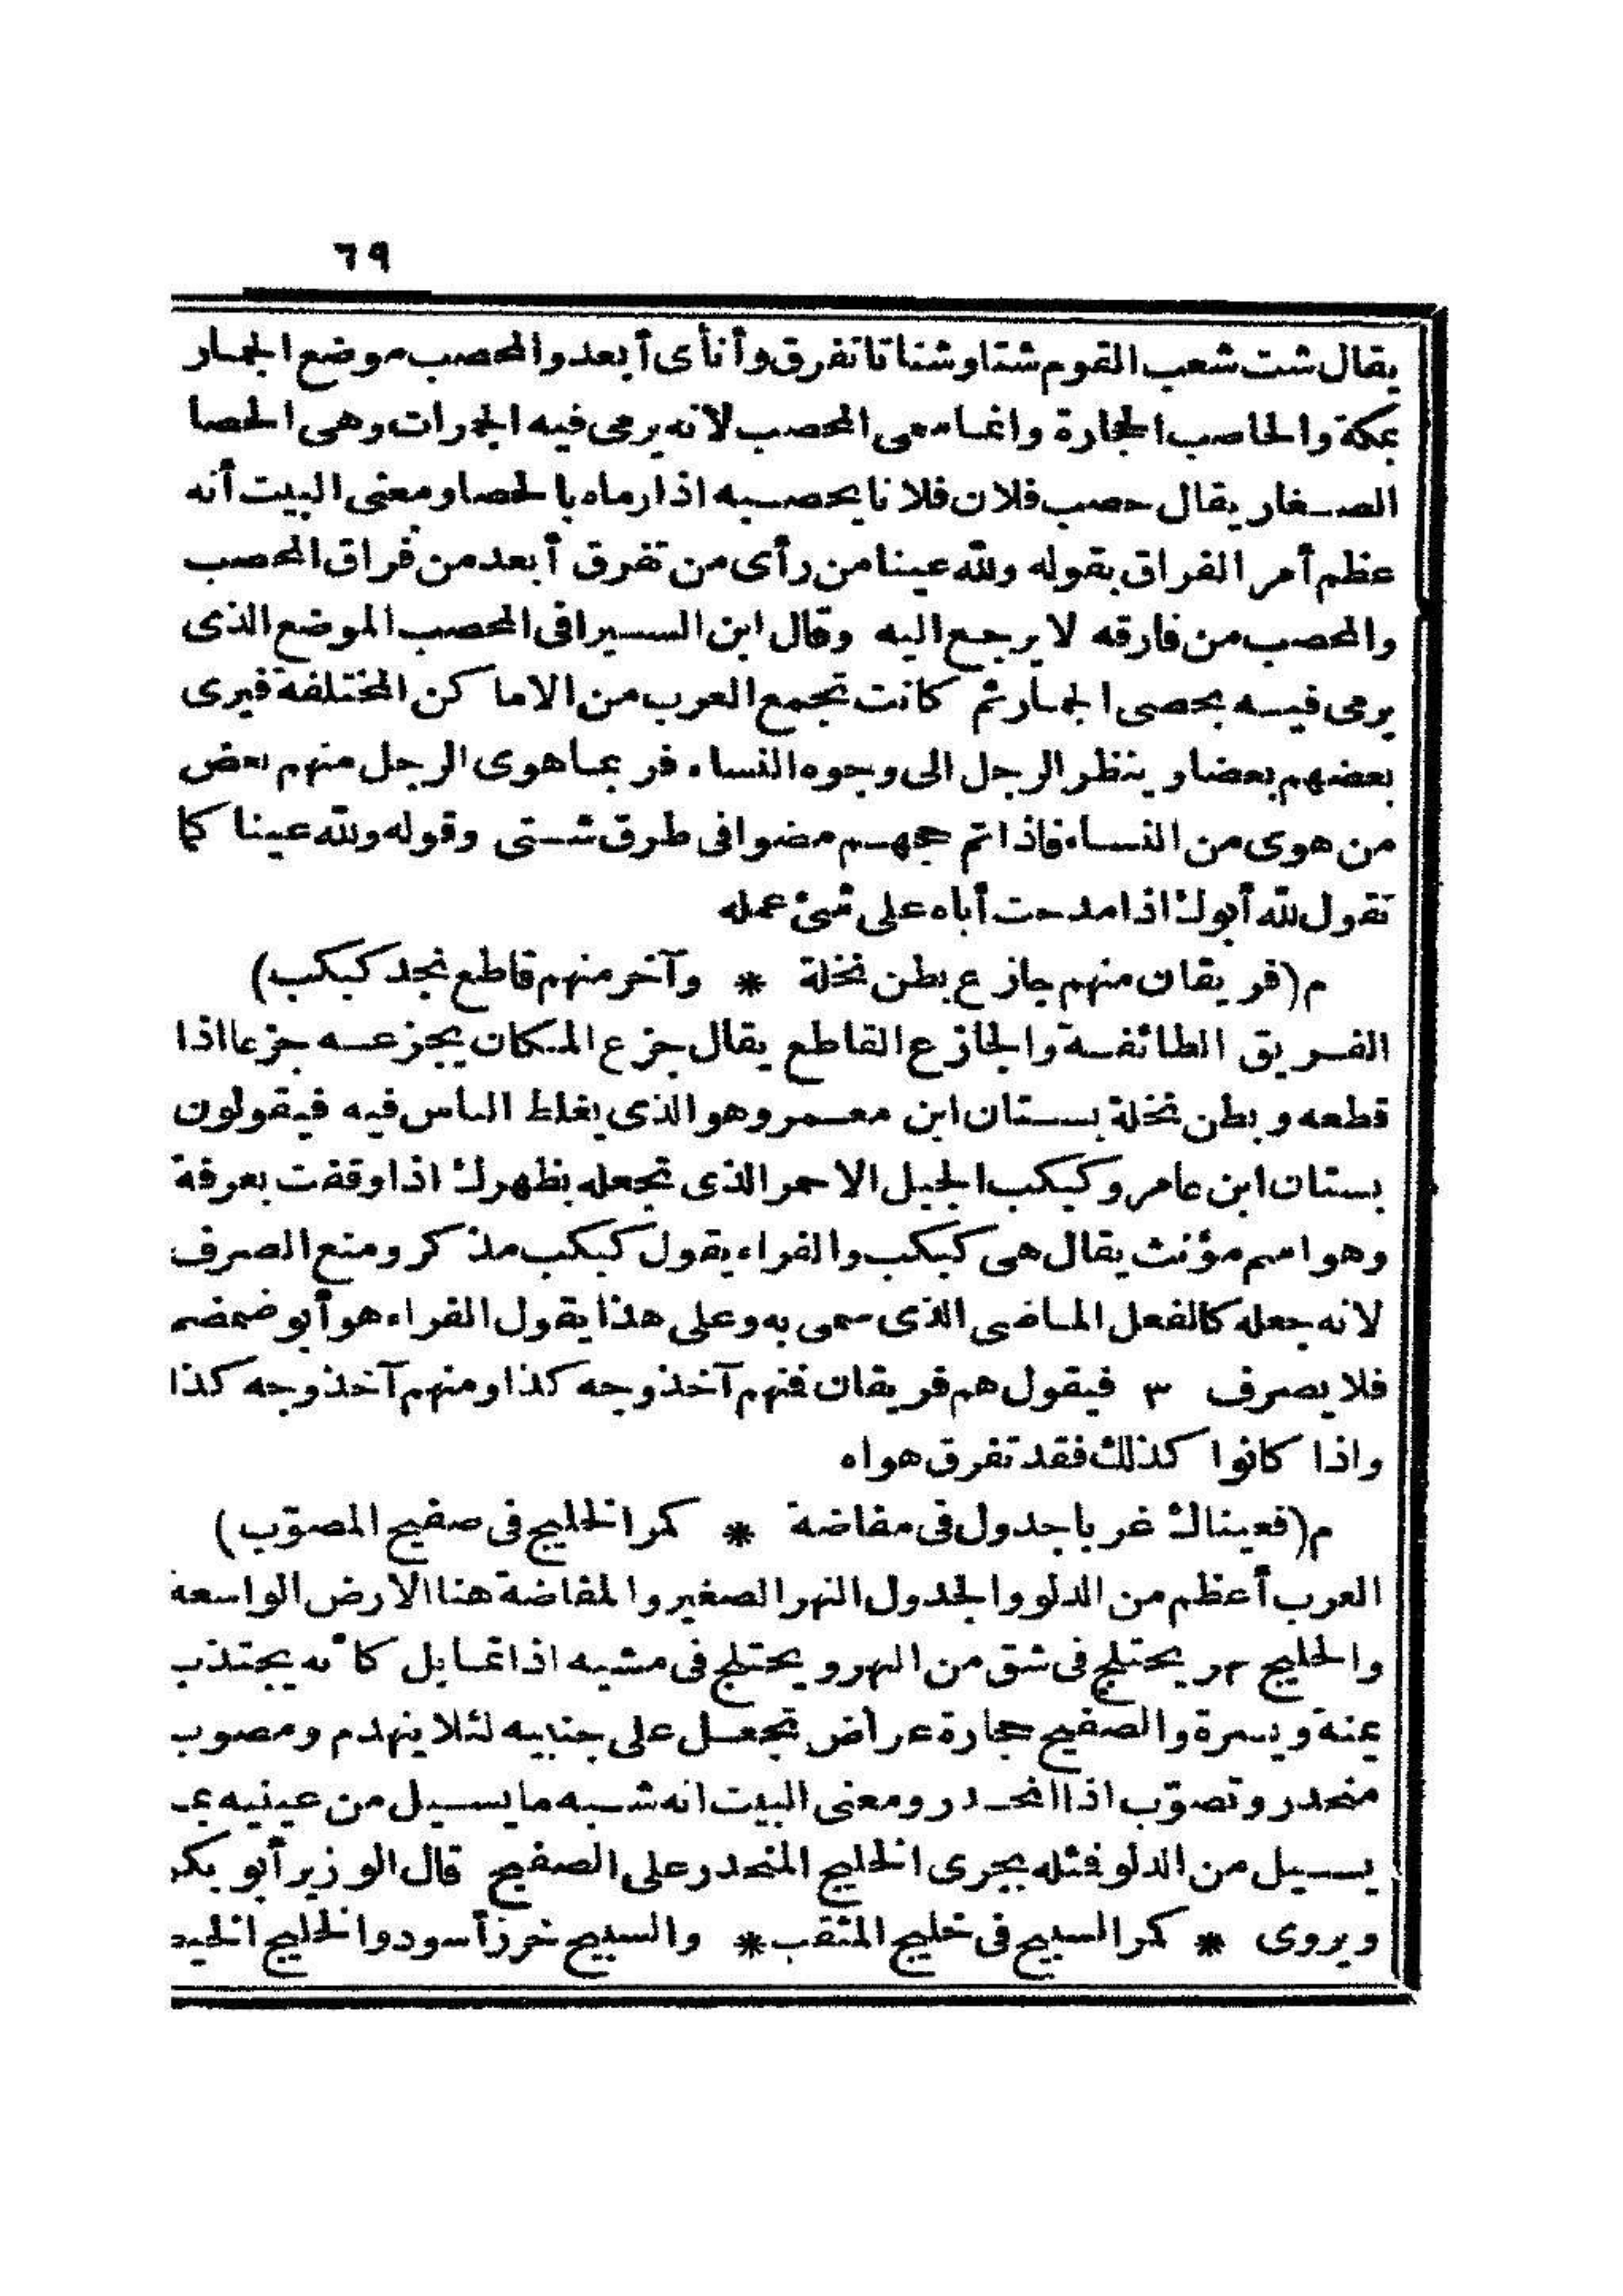 ٦٩
يقال شت شعب القوم شتا وشتاتا تفرق وأنأى أبعد والمحصب موضع الجمار
بمكة والحاصب الحجارة وانما سمى المحصب لانه يرمى فيه الجمرات وهى الحصا
الصغار يقال حصب فلان فلانا يحصبه اذا رماه بالحصا ومعنى البيت أنه
عظم أمر الفراق بقوله ولله عينا من رأى من تفرق أبعد من فراق المحصب
والمحصب من فارقه لا يرجع اليه وقال ابن السيرافى المحصب الموضع الذى
يرمى فيه بحصى الجمار ثم كانت تجمع العرب من الاماكن المختلفة فيرى
بعضهم بعضا وينظر الرجل الى وجوه النساء فربما هوى الرجل منهم بعض
من هوى من النساء فاذا تم حجهم مضوا فى طرق شتى وقوله ولله عينا كما
تقول لله أبوك اذا مدحت أباه على شئ عمله
م (فريقان منهم جازع بطن نخلة * وآخر منهم قاطع نجد كبكب)
الفريق الطائفة والجازع القاطع يقال جزع المكان يجزعه جزعا اذا
قطعه وبطن نخلة بستان ابن معمر وهو الذى يغلط الناس فيه فيقولون
بستان ابن عامر وكبكب الجبل الاحمر الذى تجعله بظهرك اذا وقفت بعرفة
وهو اسم مؤنث يقال هى كبكب والفراء يقول كبكب مذكر ومنع الصرف
لانه جعله كالفعل الماضى الذى سمى به وعلى هذا يقول الفراء هو أبو ضمضم
فلا يصرف ٣ فيقول هم فريقان فمنهم آخذ وجه كذا ومنهم آخذ وجه كذا
واذا كانوا كذلك فقد تفرق هواه
م (فعيناك غربا جدول فى مفاضة * كمر الخليج فى صفيح المصوّب)
الغرب أعظم من الدلو والجدول النهر الصغير والمفاضة هنا الارض الواسعة
والخليج نهر يختلج فى شق من النهر ويختلج فى مشيه اذا تمايل كأنه يجتذب
يمنة ويسرة والصفيح حجارة عراض تجعل على جنبيه لئلا ينهدم ومصوب
منحدر وتصوّب اذا انحدر ومعنى البيت انه شبه ما يسيل من عينيه بما
يسيل من الدلو فمثله يجرى الخليج المنحدر على الصفيح قال الوزير أبو بكر
ويروى * كمر السبيح فى خليج المثقب * والسبيح خرز أسود والخليج الخيط